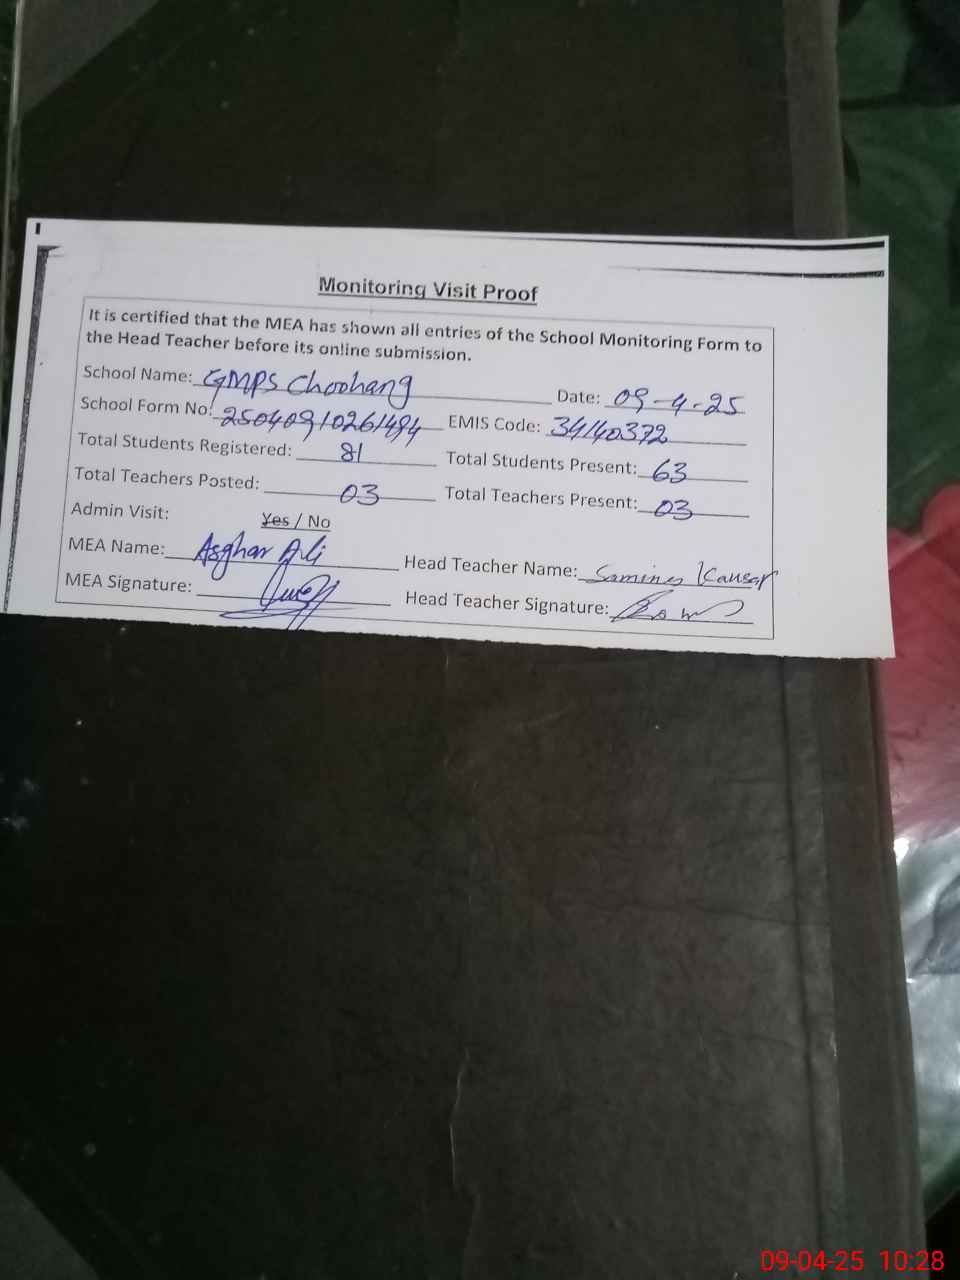 Monitoring Visit Proof
It is certified that the MEA has shown all entries of the School Monitoring Form to
the Head Teacher before its online submission.
School Name: GMPS Choohang Date: 09-4-25
School Form No: 25040910261494 EMIS Code: 34140372
Total Students Registered: 81 Total Students Present: 63
Total Teachers Posted: 03 Total Teachers Present: 03
Admin Visit: Yes / No
MEA Name: Asghar Ali Head Teacher Name: Kausar
MEA Signature: Head Teacher Signature:
09-04-25 10:28